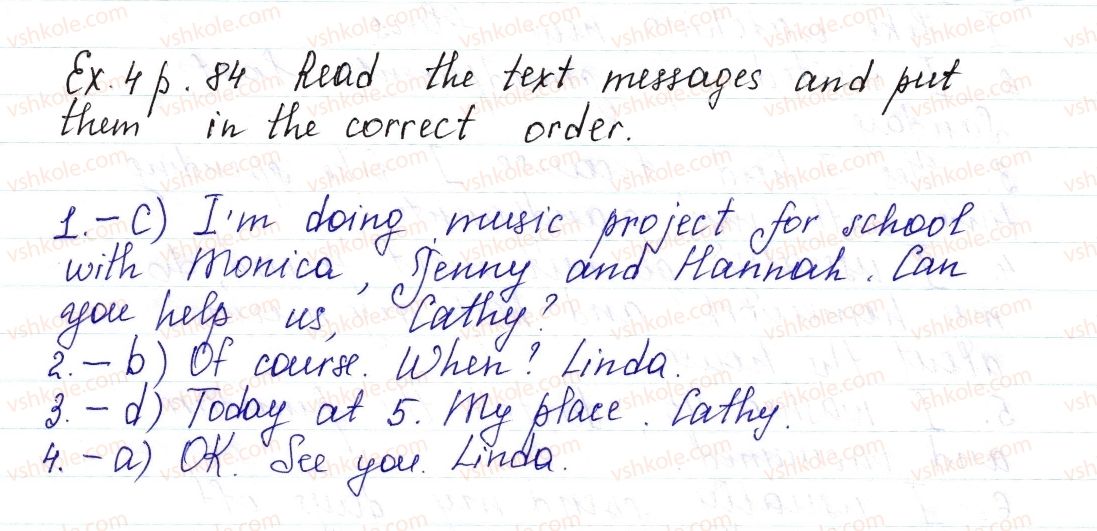 Ex. 4 p. 84 Read the text messages and put
them in the correct order.
1. – c) I'm doing music project for school
with Monica, Jenny and Hannah. Can
you help us, Cathy?
2. – b) Of course. When? Linda.
3. – d) Today at 5. My place. Cathy.
4. – a) OK. See you. Linda.